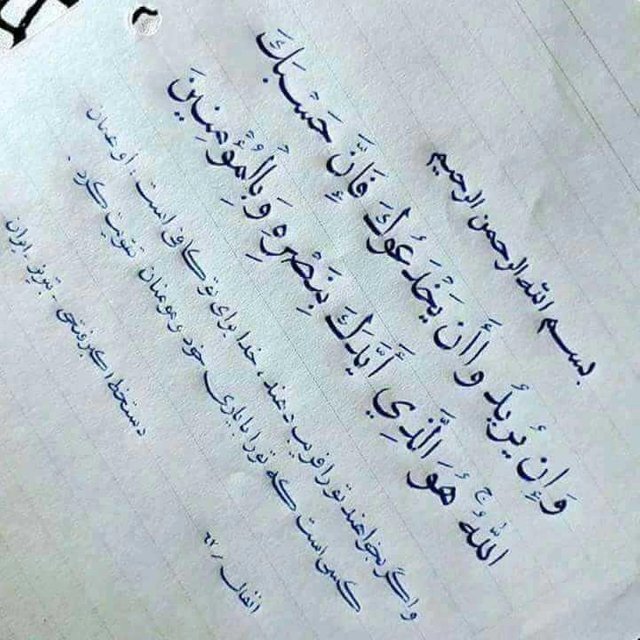 بسم الله الرحمن الرحيم
وَإِن يُرِيدُوا أَن يَخْدَعُوكَ فَإِنَّ حَسْبَكَ
اللَّهُ ۚ هُوَ الَّذِي أَيَّدَكَ بِنَصْرِهِ وَبِالْمُؤْمِنِينَ
واگر بخواهند تو را فریب دهند، خدا برای تو کافی است. او همان
کسی است که تو را با یاری خود و مومنان تقویت کرد.
انفال / ۶۲
دستخط اکبر فتحی. تبریز. ایران